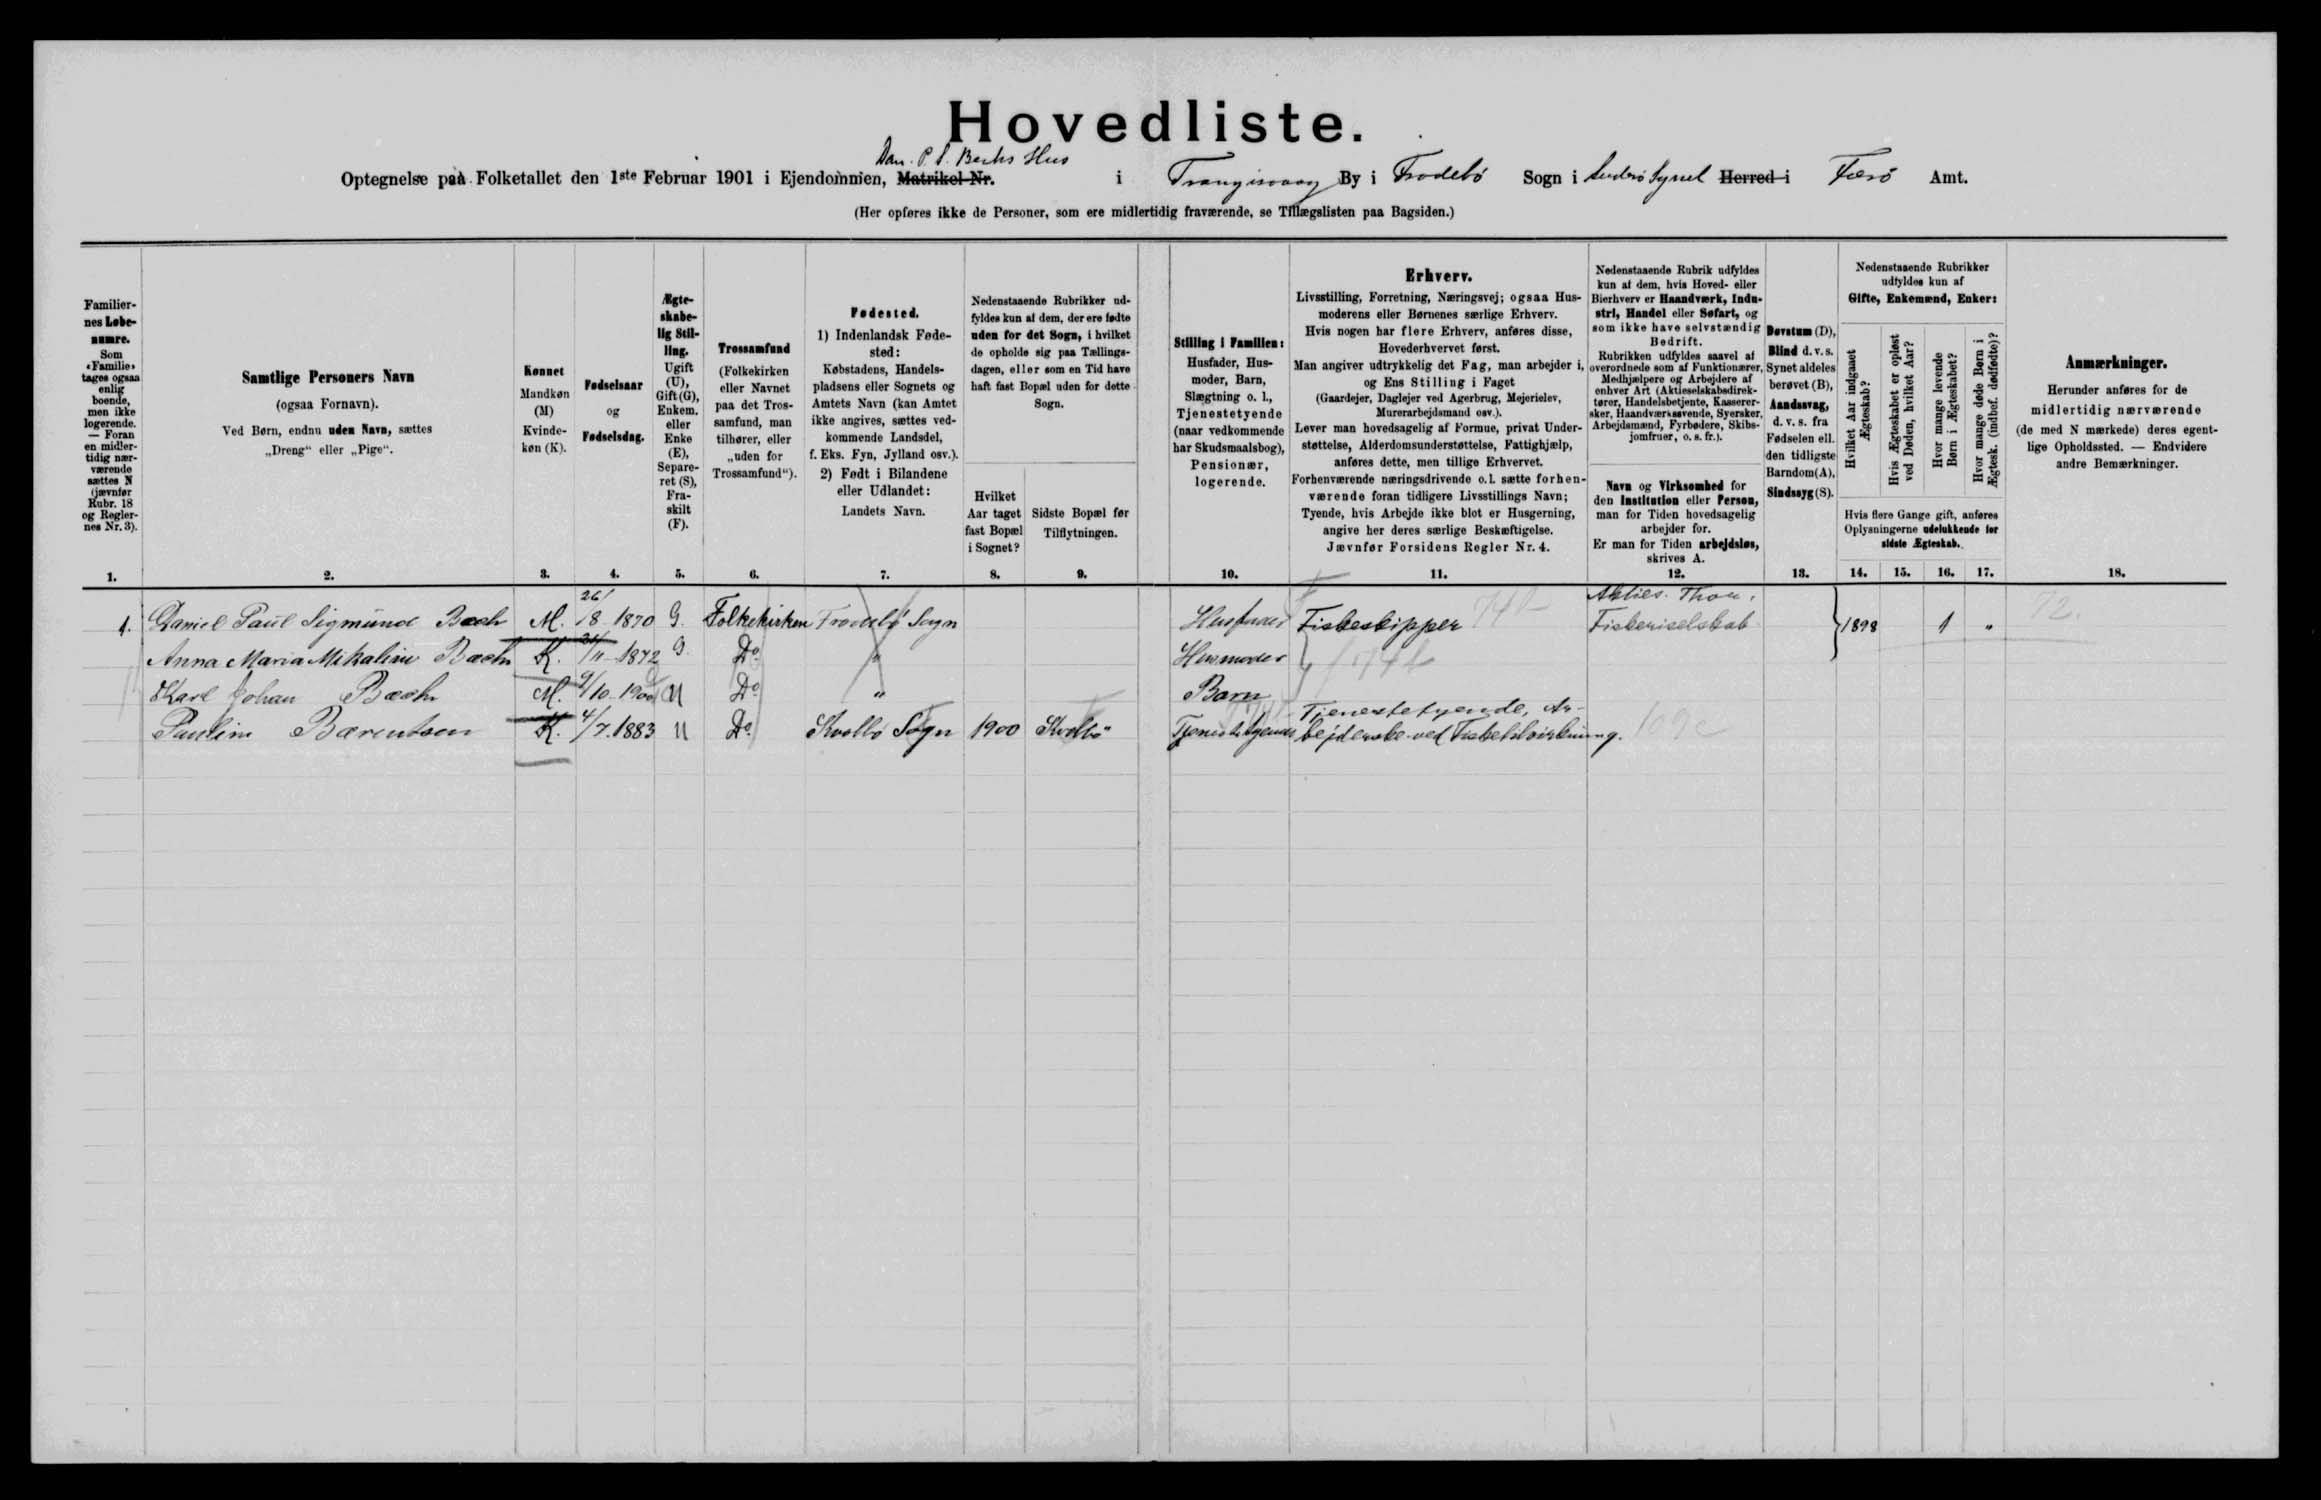 Hovedliste.
Dan. P. S. Bechs Hus
Optegnelse paa Folketallet den 1ste Februar 1901 i Ejendommen, Matrikel-Nr. i Trangisvaag By i Frodebö Sogn i Suderö Syssel Herred i Færö Amt.
(Her opføres ikke de Personer, som ere midlertidig fraværende, se Tillægslisten paa Bagsiden.)
Familiernes Løbenumre.
Som «Familie» tages ogsaa enlig boende, men ikke logerende. — Foran en midlertidig nærværende sættes N (jævnfør Rubr. 18 og Reglernes Nr. 3).
1.
Samtlige Personers Navn
(ogsaa Fornavn).
Ved Børn, endnu uden Navn, sættes „Dreng" eller „Pige".
2.
Kønnet
Mandkøn (M)
Kvindekøn (K).
3.
Fødselsaar
og
Fødselsdag.
4.
Ægteskabelig Stilling.
Ugift (U), Gift (G), Enkem. eller Enke (E), Separeret (S), Fraskilt (F).
5.
Trossamfund
(Folkekirken eller Navnet paa det Trossamfund, man tilhører, eller „uden for Trossamfund").
6.
Fødested.
1) Indenlandsk Fødested:
Købstadens, Handelspladsens eller Sognets og Amtets Navn (kan Amtet ikke angives, sættes vedkommende Landsdel, f. Eks. Fyn, Jylland osv.).
2) Født i Bilandene eller Udlandet:
Landets Navn.
7.
Nedenstaaende Rubrikker udfyldes kun af dem, der ere fødte uden for det Sogn, i hvilket de opholde sig paa Tællingsdagen, eller som en Tid have haft fast Bopæl uden for dette Sogn.
Hvilket Aar taget fast Bopæl i Sognet?
8.
Sidste Bopæl før Tilflytningen.
9.
Stilling i Familien:
Husfader, Husmoder, Barn, Slægtning o. l., Tjenestetyende (naar vedkommende har Skudsmaalsbog), Pensionær, logerende.
10.
Erhverv.
Livsstilling, Forretning, Næringsvej; ogsaa Husmoderens eller Børnenes særlige Erhverv.
Hvis nogen har flere Erhverv, anføres disse, Hovederhvervet først.
Man angiver udtrykkelig det Fag, man arbejder i, og Ens Stilling i Faget
(Gaardejer, Daglejer ved Agerbrug, Mejerielev, Murerarbejdsmand osv.).
Lever man hovedsagelig af Formue, privat Understøttelse, Alderdomsunderstøttelse, Fattighjælp, anføres dette, men tillige Erhvervet.
Forhenværende næringsdrivende o. l. sætte forhenværende foran tidligere Livsstillings Navn;
Tyende, hvis Arbejde ikke blot er Husgerning, angive her deres særlige Beskæftigelse.
Jævnfør Forsidens Regler Nr. 4.
11.
Nedenstaaende Rubrik udfyldes kun af dem, hvis Hoved- eller Bierhverv er Haandværk, Industri, Handel eller Søfart, og som ikke have selvstændig Bedrift.
Rubrikken udfyldes saavel af overordnede som af Funktionærer, Medhjælpere og Arbejdere af enhver Art (Aktieselskabsdirektører, Handelsbetjente, Kasserersker, Haandværkssvende, Syersker, Arbejdsmænd, Fyrbødere, Skibsjomfruer, o. s. fr.).
Navn og Virksomhed for den Institution eller Person, man for Tiden hovedsagelig arbejder for.
Er man for Tiden arbejdsløs, skrives A.
12.
Døvstum (D), Blind d. v. s. Synet aldeles berøvet (B), Aandssvag, d. v. s. fra Fødselen ell. den tidligste Barndom (A), Sindssyg (S).
13.
Nedenstaaende Rubrikker udfyldes kun af
Gifte, Enkemænd, Enker:
Hvilket Aar indgaaet Ægteskab?
Hvis Ægteskabet er opløst ved Døden, hvilket Aar?
Hvor mange levende Børn i Ægteskabet?
Hvor mange døde Børn i Ægtesk. (indbef. dødfødte)?
Hvis flere Gange gift, anføres Oplysningerne udelukkende for sidste Ægteskab.
14. 15. 16. 17.
Anmærkninger.
Herunder anføres for de midlertidig nærværende (de med N mærkede) deres egentlige Opholdssted. — Endvidere andre Bemærkninger.
18.
1. Daniel Paul Sigmund Bech M. 26/8 1870 G. Folkekirken Frodebö Sogn Husfader Fiskeskipper 74b Akties. Thor. Fiskeriselskab 1898 1 " 72.
Anna Maria Mikaline Bech K. 24/11 1872 G. Do " Husmoder 74b
Karl Johan Bech M. 9/10 1900 U Do " Barn
Pauline Bærentsen K. 4/7. 1883 U Do Kvalbö Sogn 1900 Kvalbö Tjenestetyende Tjenestetyende, Arbejderske ved Fisketilvirkning. 109c